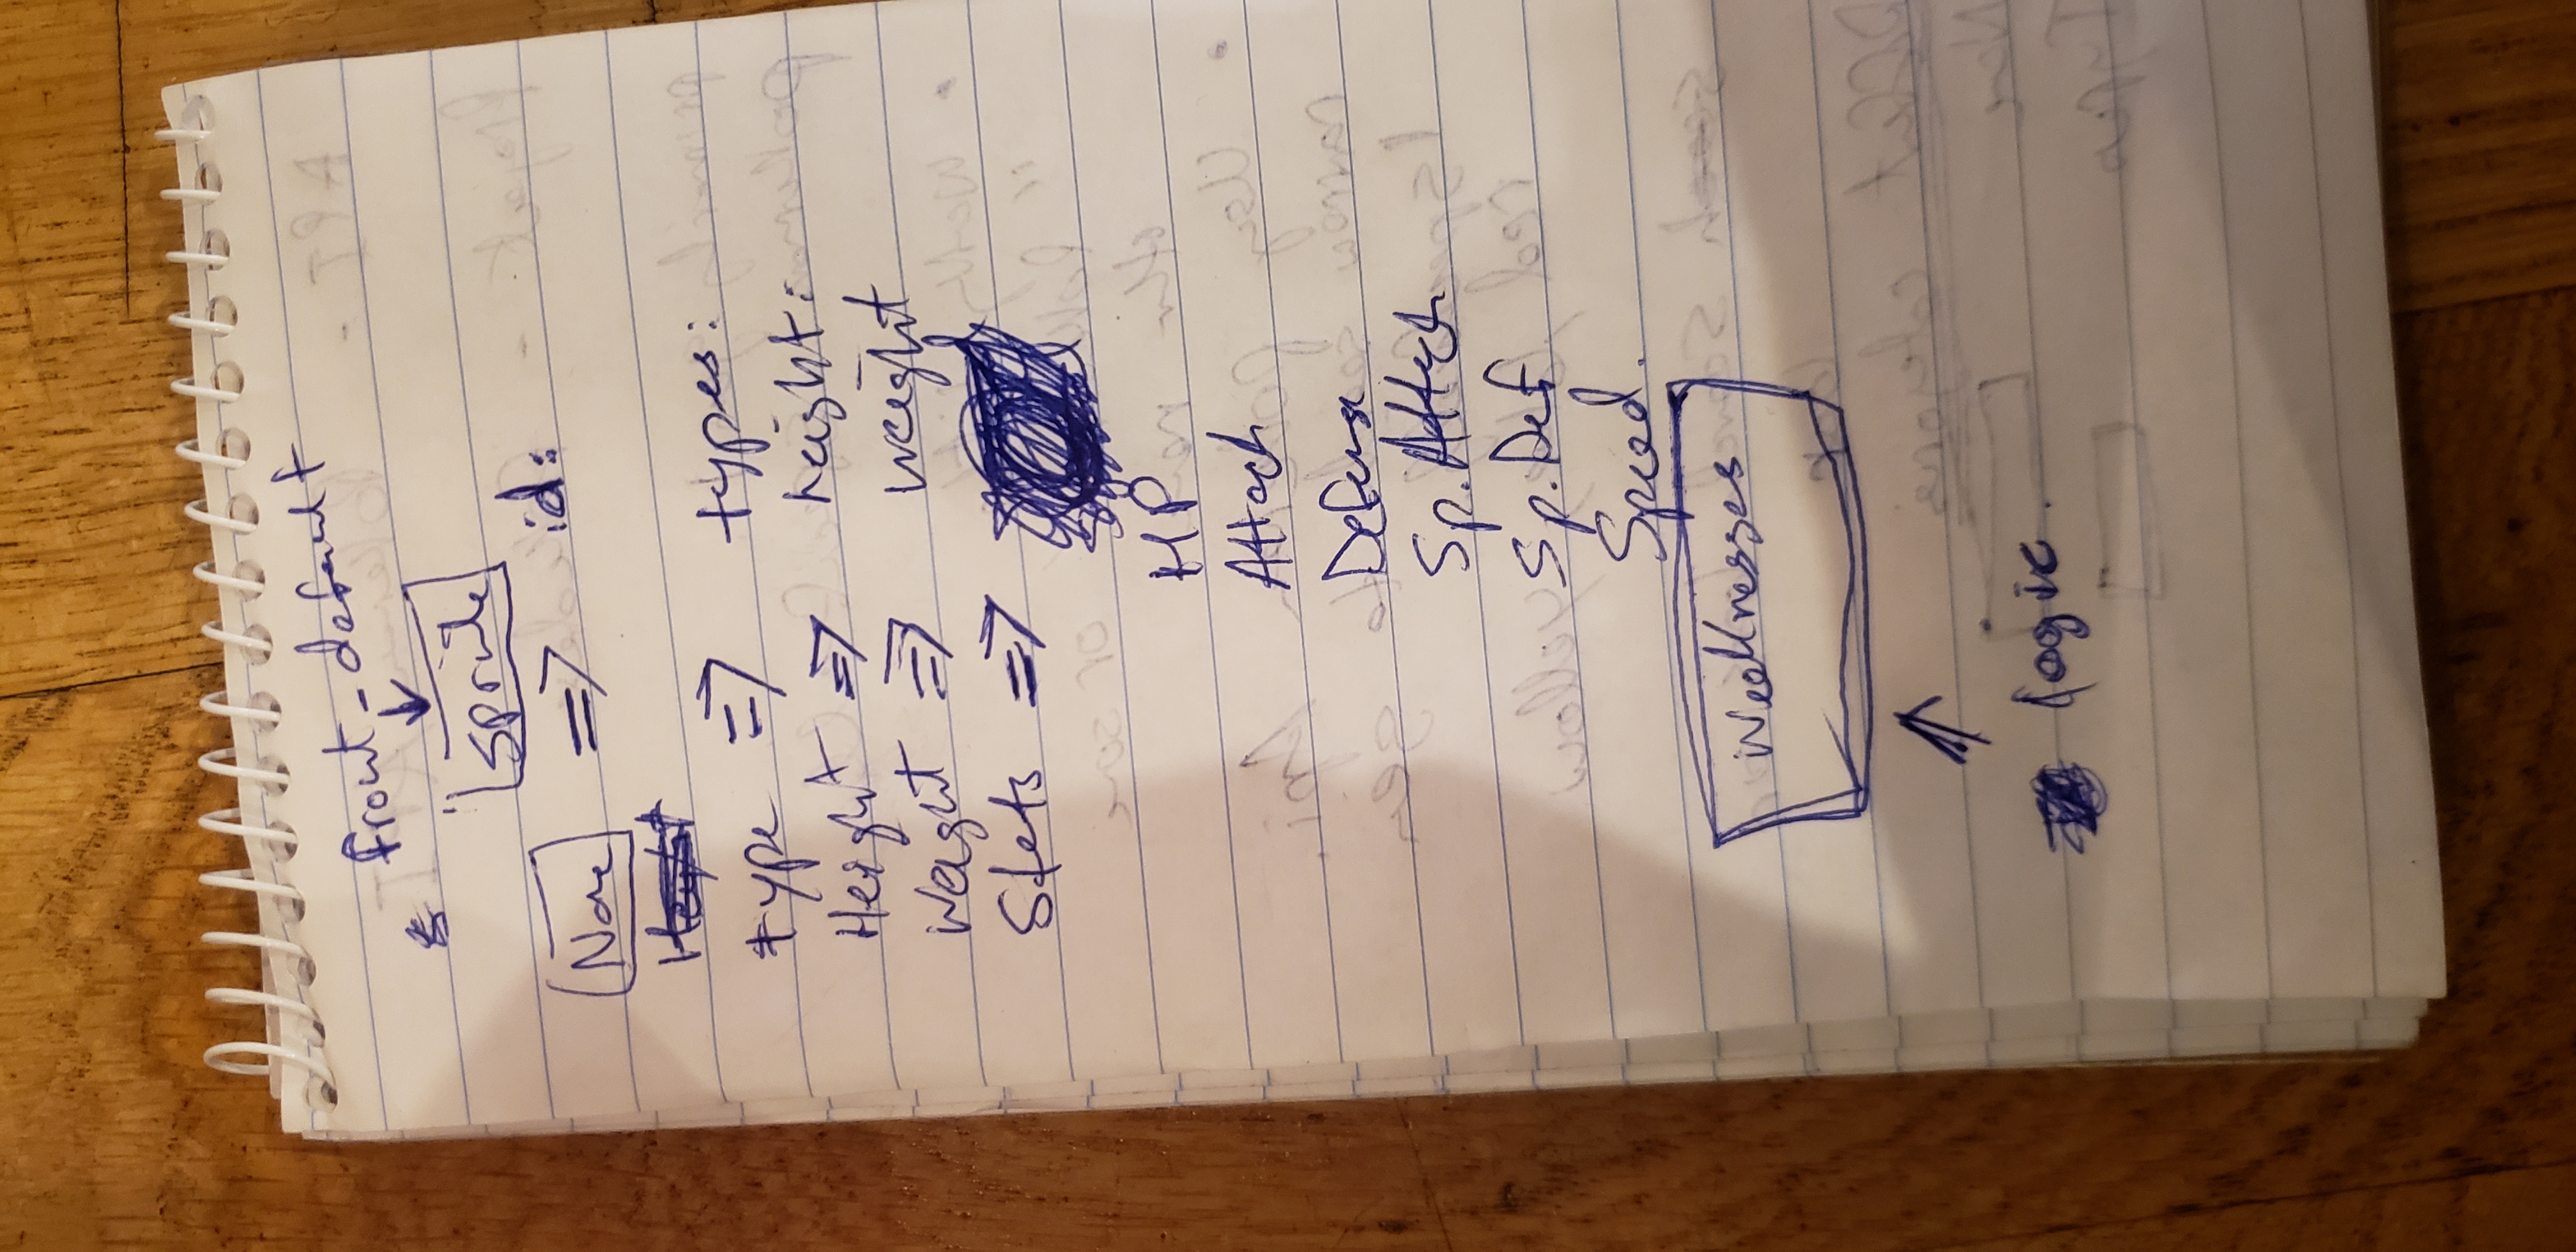 front_default
↓
Sprite
Name => id:
type => types:
Height => height:
Weight => weight
Stats =>
HP
Attack
Defense
Sp. Attack
Sp. Def
Speed.
Weaknesses
↑
logic.